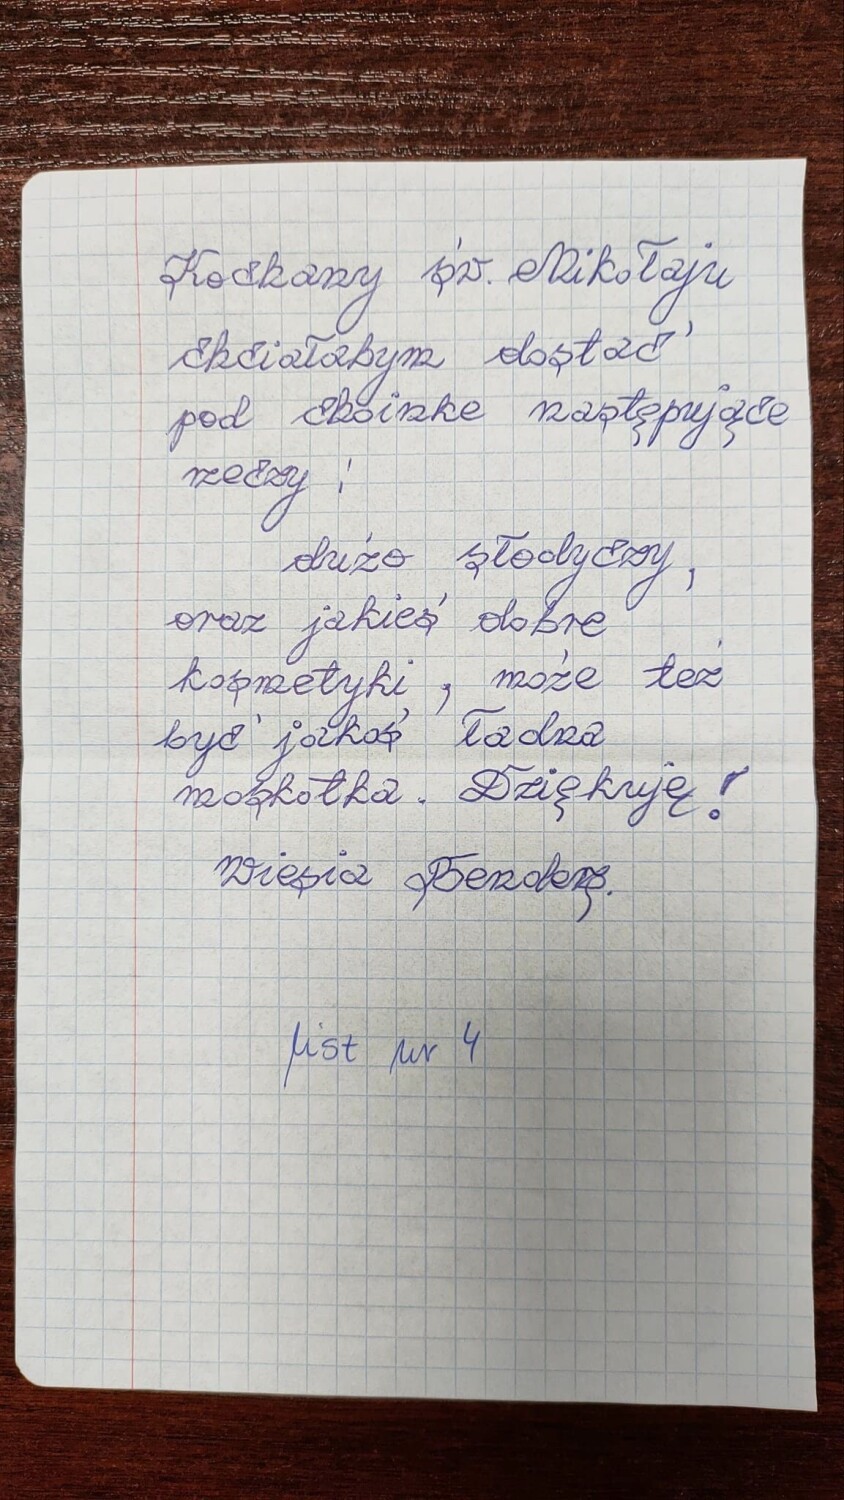 Kochany św. Mikołaju
chciałabym dostać
pod choinke następujące
rzeczy :
dużo słodyczy,
oraz jakieś dobre
kosmetyki, może też
być jakaś ładna
maskotka. Dziękuję!
Wiesia
List nr 4